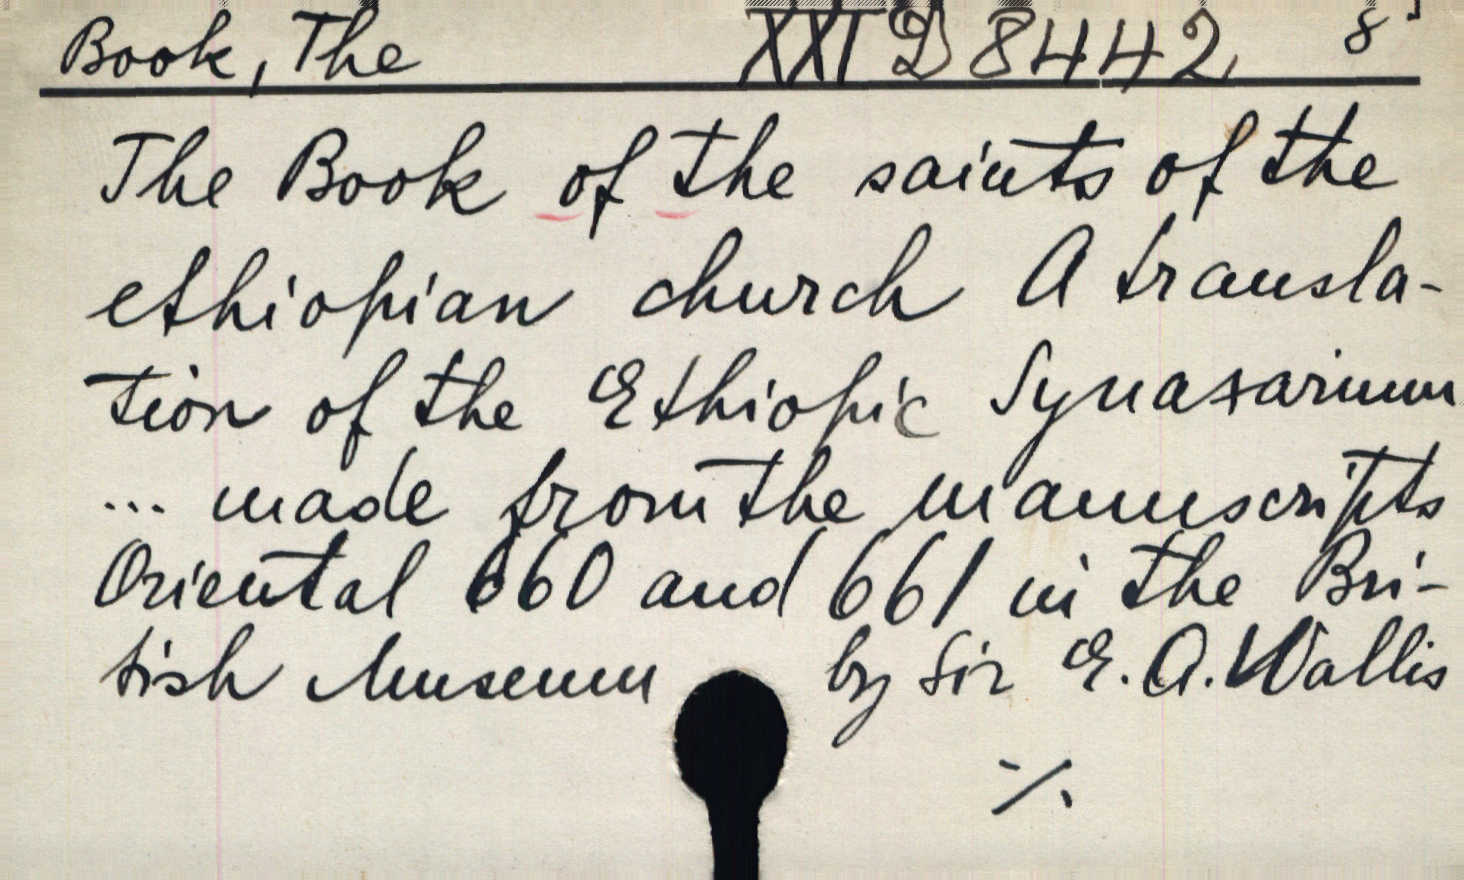 Book, The XXI D 8442 8°
The Book of the saints of the
ethiopian church A transla-
tion of the Ethiopic Synaxarium
... made from the manuscripts
Oriental 660 and 661 in the Bri-
tish Museum by Sir E. A. Wallis
./.